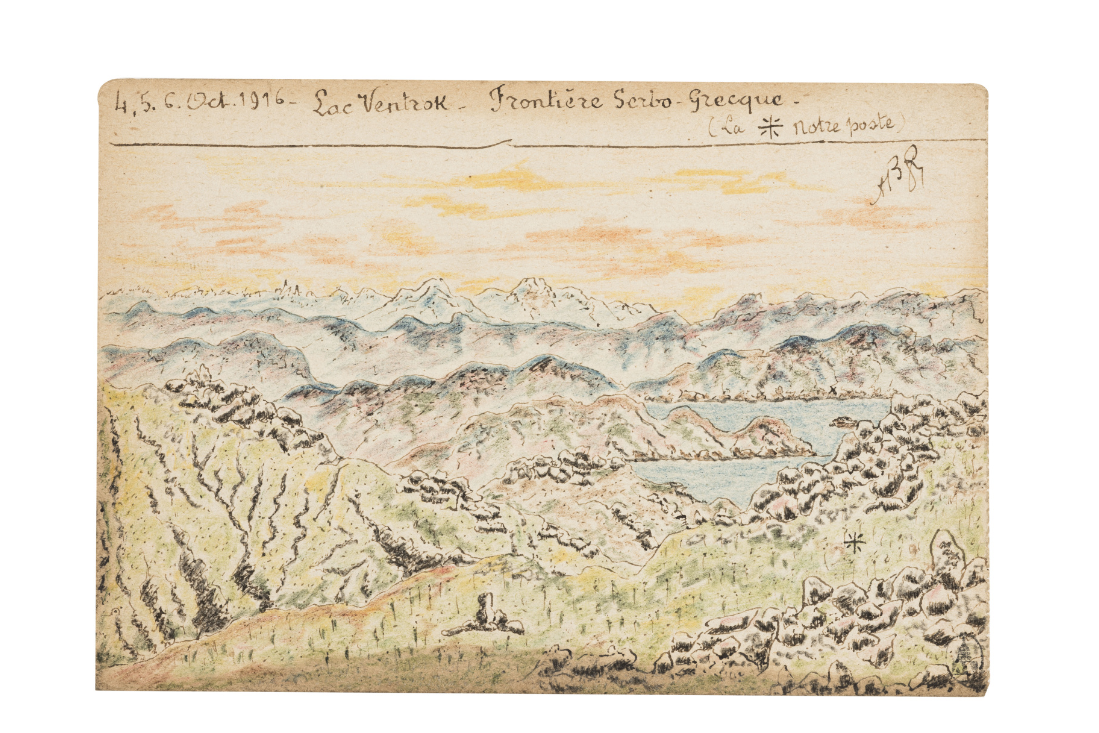 4, 5. 6. Oct. 1916 - Lac Ventrok - Frontière Serbo-Grecque -
(La ⚹ notre poste)